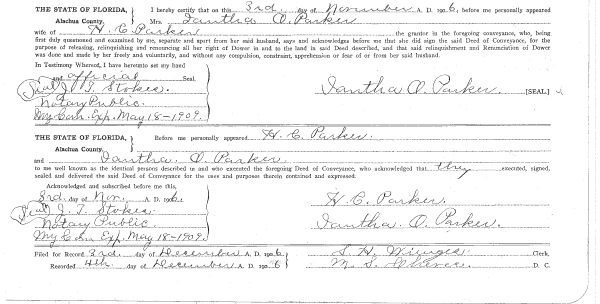 THE STATE OF FLORIDA, } I hereby certify that on this 3rd. day of November A. D. 1906, before me personally appeared
Alachua County. Mrs. Iantha O. Parker
wife of H. C. Parker the grantor in the foregoing conveyance, who, being
first duly questioned and examined by me, separate and apart from her said husband, says and acknowledges before me that she did sign the said Deed of Conveyance, for the
purpose of releasing, relinquishing and renouncing all her right of Dower in and to the land in said Deed described, and that said relinquishment and Renunciation of Dower
was done and made by her freely and voluntarily, and without any compulsion, constraint, apprehension or fear of or from her said husband.
In Testimony Whereof, I have hereunto set my hand
and official Seal.
(Seal) J. T. Stokes. Iantha O. Parker. [SEAL.]
Notary Public.
My Com. Exp. May 18-1909.
THE STATE OF FLORIDA, } Before me personally appeared H. C. Parker.
Alachua County.
and Iantha O. Parker
to me well known as the identical persons described in and who executed the foregoing Deed of Conveyance, who acknowledged that they executed, signed,
sealed and delivered the said Deed of Conveyance for the uses and purposes therein contained and expressed.
Acknowledged and subscribed before me this,
3rd. day of Nov. A. D. 1906. H. C. Parker.
(Seal) J. T. Stokes. Iantha O. Parker.
Notary Public.
My Com Exp. May 18-1909.
Filed for Record 3rd. day of December A. D. 1906 S. H. Clerk.
Recorded 4th. day of December A. D. 1906 M. S. D. C.